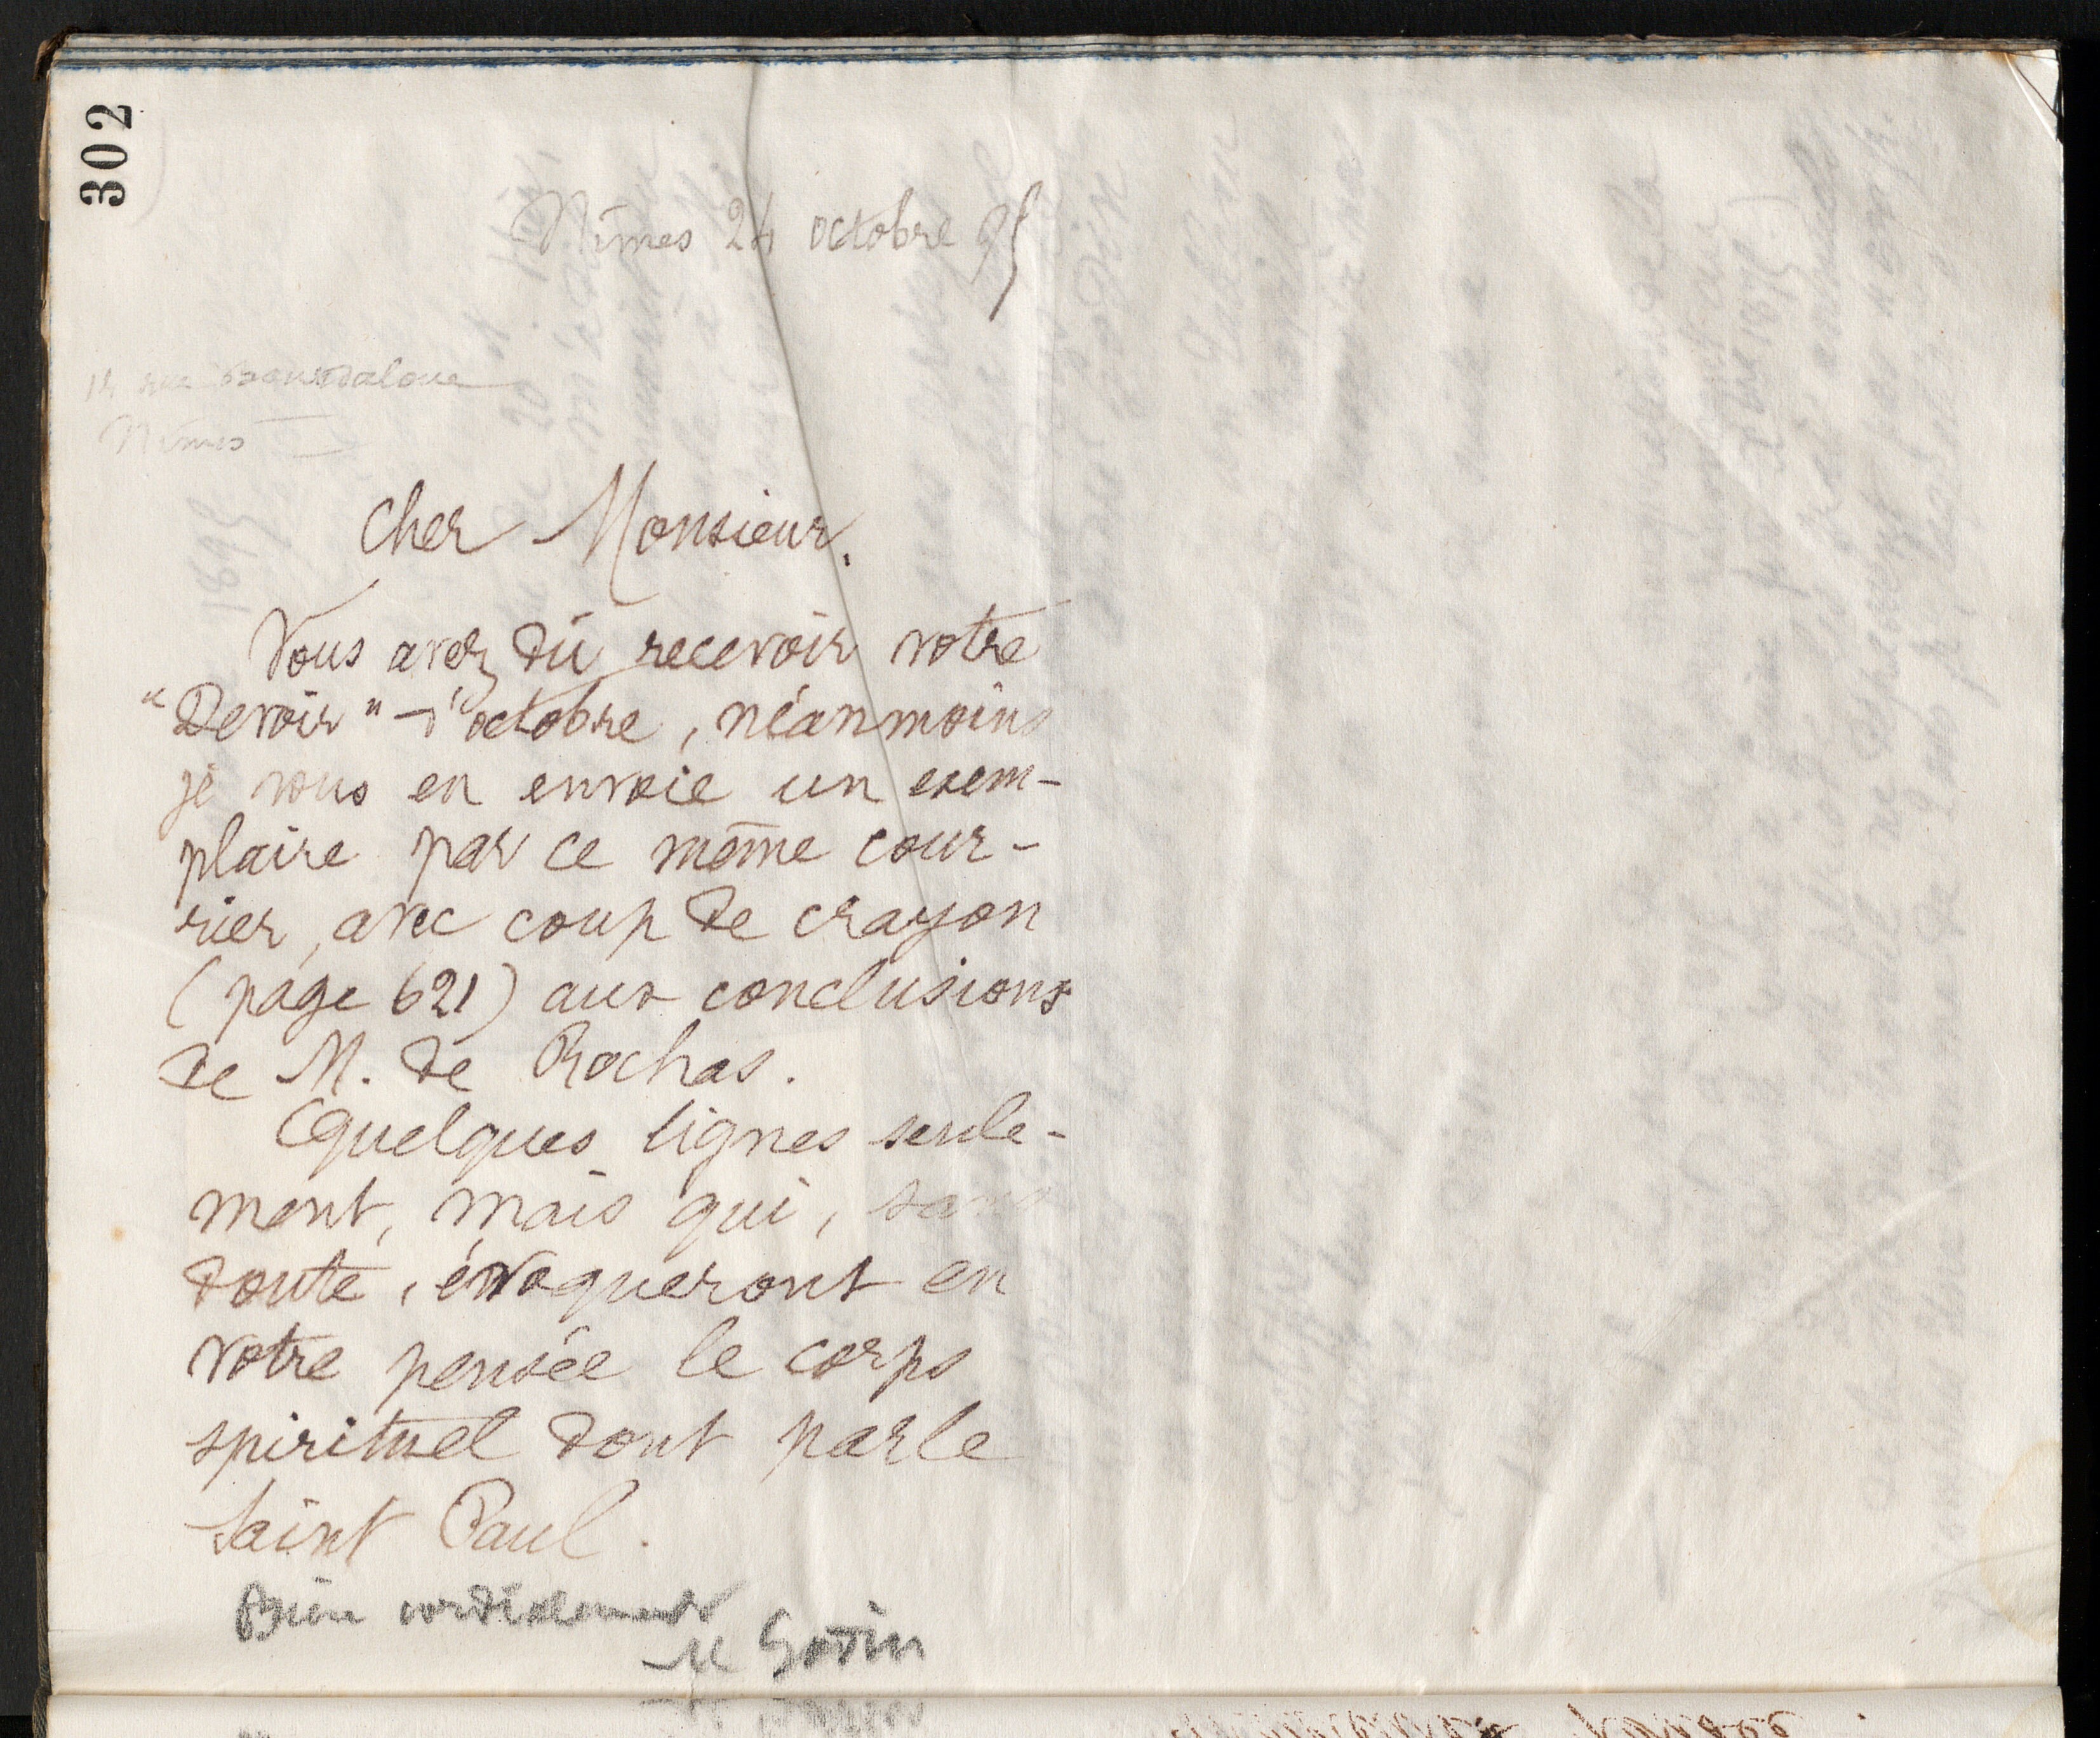 302
Nîmes 24 octobre 95
14 rue Bourdaloue
Nîmes
Cher Monsieur,
Vous avez dû recevoir votre
"Devoir" d'octobre, néanmoins
je vous en envoie un exem-
plaire par ce même cour-
rier, avec coup de crayon
(page 621) aux conclusions
de M. de Rochas.
Quelques lignes seule-
ment, mais qui, sans
doute, évoqueront en
votre pensée le corps
spirituel dont parle
Saint Paul.
Bien cordialement
M Godin